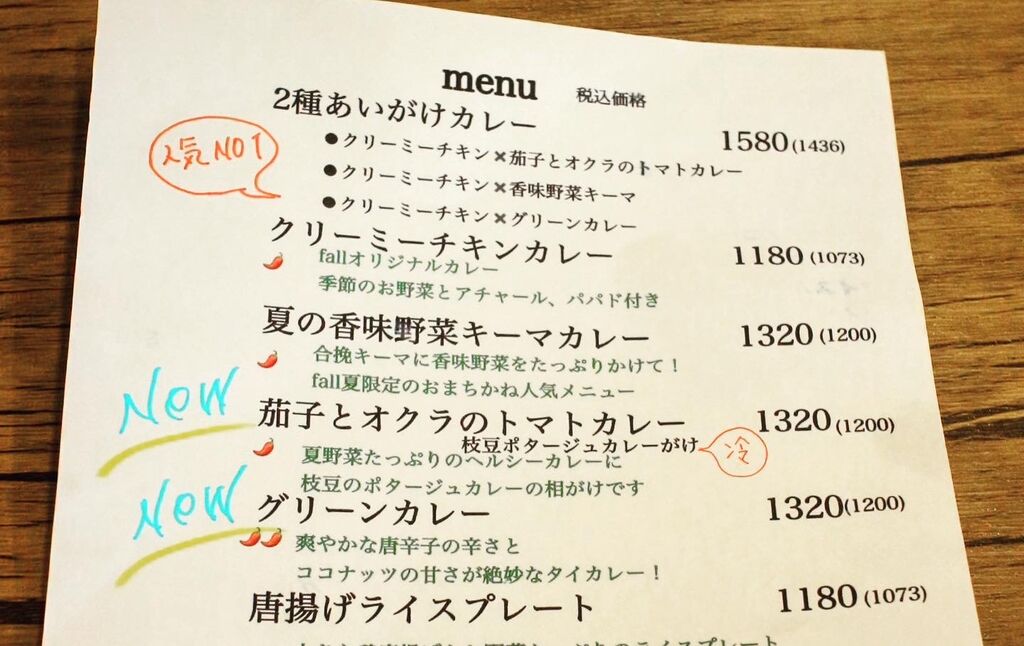 menu 税込価格
2種あいがけカレー 1580(1436)
●クリーミーチキン✖茄子とオクラのトマトカレー
人気NO1
●クリーミーチキン✖香味野菜キーマ
●クリーミーチキン✖グリーンカレー
クリーミーチキンカレー 1180(1073)
fallオリジナルカレー
季節のお野菜とアチャール、パパド付き
夏の香味野菜キーマカレー 1320(1200)
合挽キーマに香味野菜をたっぷりかけて！
fall夏限定のおまちかね人気メニュー
New 茄子とオクラのトマトカレー 1320(1200)
枝豆ポタージュカレーがけ 冷
夏野菜たっぷりのヘルシーカレーに
枝豆のポタージュカレーの相がけです
New グリーンカレー 1320(1200)
爽やかな唐辛子の辛さと
ココナッツの甘さが絶妙なタイカレー！
唐揚げライスプレート 1180(1073)